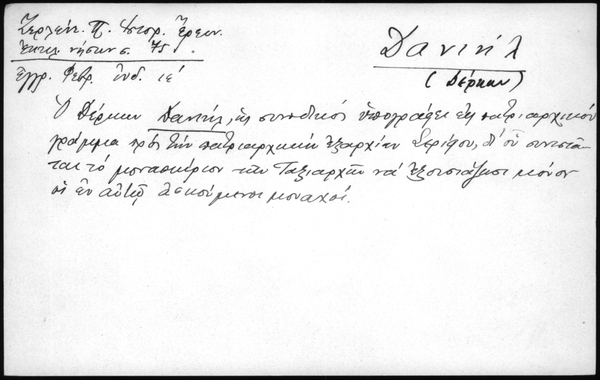 Ζερλέντ. Π. Ἱστορ. Ἔρευν.
Ἐκκλ. νήσων σ. 75
Ἔγγρ. Φεβρ. ἰνδ. ιέ
Δανιήλ
(Δέρκων)
Ὁ Δέρκων Δανιήλ, ὡς συνοδικὸς ὑπογράφει εἰς πατριαρχικὸν
γράμμα πρὸς τὴν πατριαρχικὴν ἐξαρχίαν Σερίφου, δι' οὗ συνιστᾶ-
ται τὸ μοναστήριον τῶν Ταξιαρχῶν νὰ ἐξουσιάζωσι μόνον
οἱ ἐν αὐτῇ ἀσκούμενοι μοναχοί.